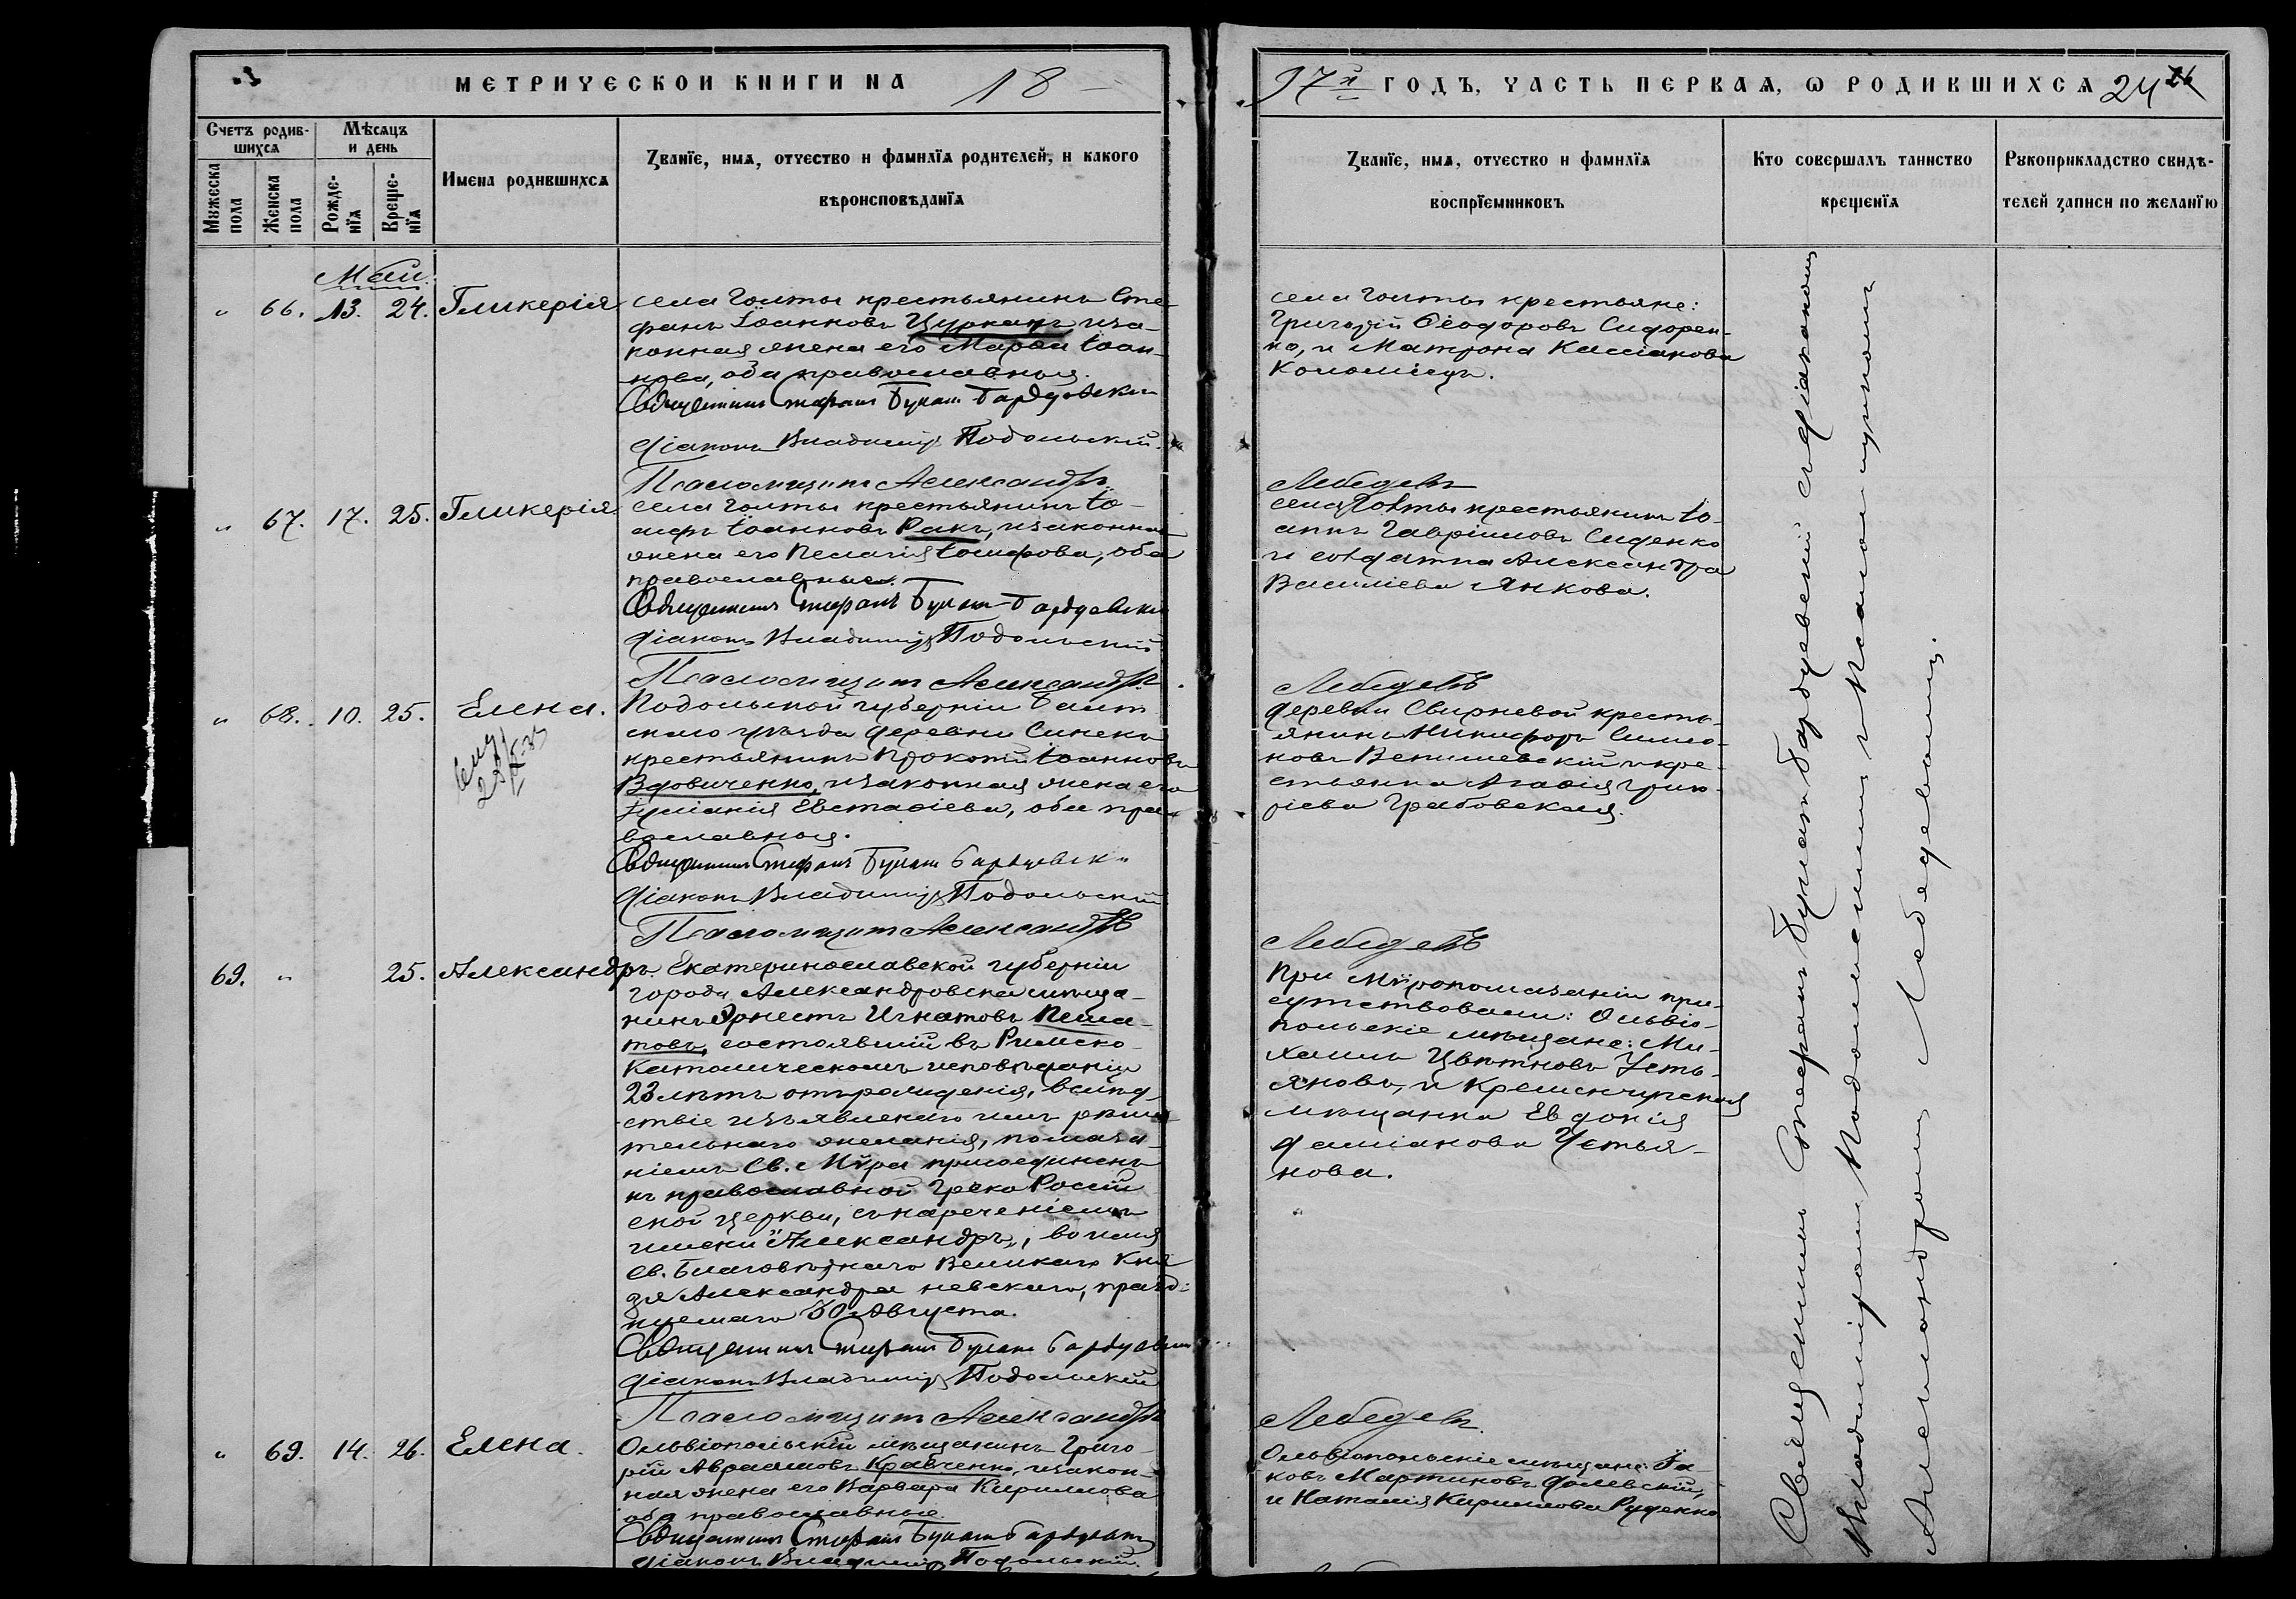 МЕТРИЧЕСКОЙ КНИГИ НА 18
97й ГОДЪ, ЧАСТЬ ПЕРВАѦ, Ѡ РОДИВШИХСѦ 24
Счетъ родив-
шихсѧ
Мѣсѧцъ
и день
Мужеска
пола
Женска
пола
Рожде-
нїѧ
Креще-
нїѧ
Имена родившихсѧ
Званїе, имѧ, отчество и фамилїѧ родителей, и какого
вѣроисповѣданїѧ
Званїе, имѧ, отчество и фамилїѧ
воспрїемниковъ
Кто совершалъ таинство
крещенїѧ
Рукоприкладство свидѣ-
телей записи по желанїю
Май.
" 66. 13. 24. Гликерія
села Голты крестьянинъ Сте-
фанъ Іоанновъ Цурканъ и за-
конная жена его Марѳа Іоан-
нова, оба православныя.
Священникъ Стефанъ Булатъ Бардуевскій
Діаконъ Владиміръ Подольскій.
Псаломщикъ Александръ
села Голты крестьяне:
Григорій Ѳеодоровъ Сидорен-
ко, и Матрона Кассіанова
Коломіецъ.
Лебедевъ
" 67. 17. 25. Гликерія
села Голты крестьянинъ Іо-
сифъ Іоанновъ Ракъ, и законная
жена его Пелагія Іосифова, оба
православные.
Священникъ Стефанъ Булатъ-Бардуевскій
Діаконъ Владиміръ Подольскій
Псаломщикъ Александръ
села Голты крестьянинъ Іо-
аннъ Гавріиловъ Сиденко
и солдатка Александра
Василіева Янкова.
Лебедевъ
" 68. 10. 25. Елена.
Подольской губерніи Балт-
скаго уѣзда деревни Синек
крестьянинъ Прокопій Іоанновъ
Вдовиченко, и законная жена его
Іуліанія Евстаѳіева, оба пра-
вославныя.
Священникъ Стефанъ Булатъ Бардуевскій
Діаконъ Владиміръ Подольскій
Псаломщикъ Александръ
деревни Свирневой кресть-
янинъ Никифоръ Симео-
новъ Венишевскій и кре-
стьянка Агаѳія Григо-
ріева Грабовская.
Лебедевъ
69. " 25. Александръ.
Екатеринославской губерніи
города Александровска мѣща-
нинъ Эрнестъ Игнатовъ Пеша-
товъ, состоявшій въ Римско-
Католическомъ исповѣданіи
23 лѣтъ отъ рожденія, вслѣд-
ствіе изъявленнаго имъ рѣши-
тельнаго желанія, помаза-
ніемъ Св. Мѵра присоединенъ
къ православной Греко Россій
ской церкви, съ нареченіемъ
имени "Александръ", во имя
св. Благовѣрнаго Великаго Кня
зя Александра Невскаго, празд-
нуемаго 30 Августа.
Священникъ Стефанъ Булатъ Бардуевскій
Діаконъ Владиміръ Подольскій
Псаломщикъ Александръ
При Мѵропомазаніи при-
сутствовали: Ольвіо-
польскіе мѣщане: Ми-
хаилъ Цвѣтковъ Усть-
яновъ, и Кременчугская
мѣщанка Евдокія
Даміанова Устья-
нова.
Лебедевъ.
" 69. 14. 26. Елена.
Ольвіопольскій мѣщанинъ Григо-
рій Авраамовъ Кравченко, и закон-
ная жена его Варвара Кириллова
оба православные.
Священникъ Стефанъ Булатъ Бардуевскій
Діаконъ Владиміръ Подольскій.
Ольвіопольскіе мѣщане: Іа-
ковъ Мартиновъ Долевскій,
и Наталія Кириллова Руденко
Священникъ Стефанъ Булатъ Бардуевскій съ діакономъ
Владиміромъ Подольскимъ и Псаломщикомъ
Александромъ Лебедевымъ.